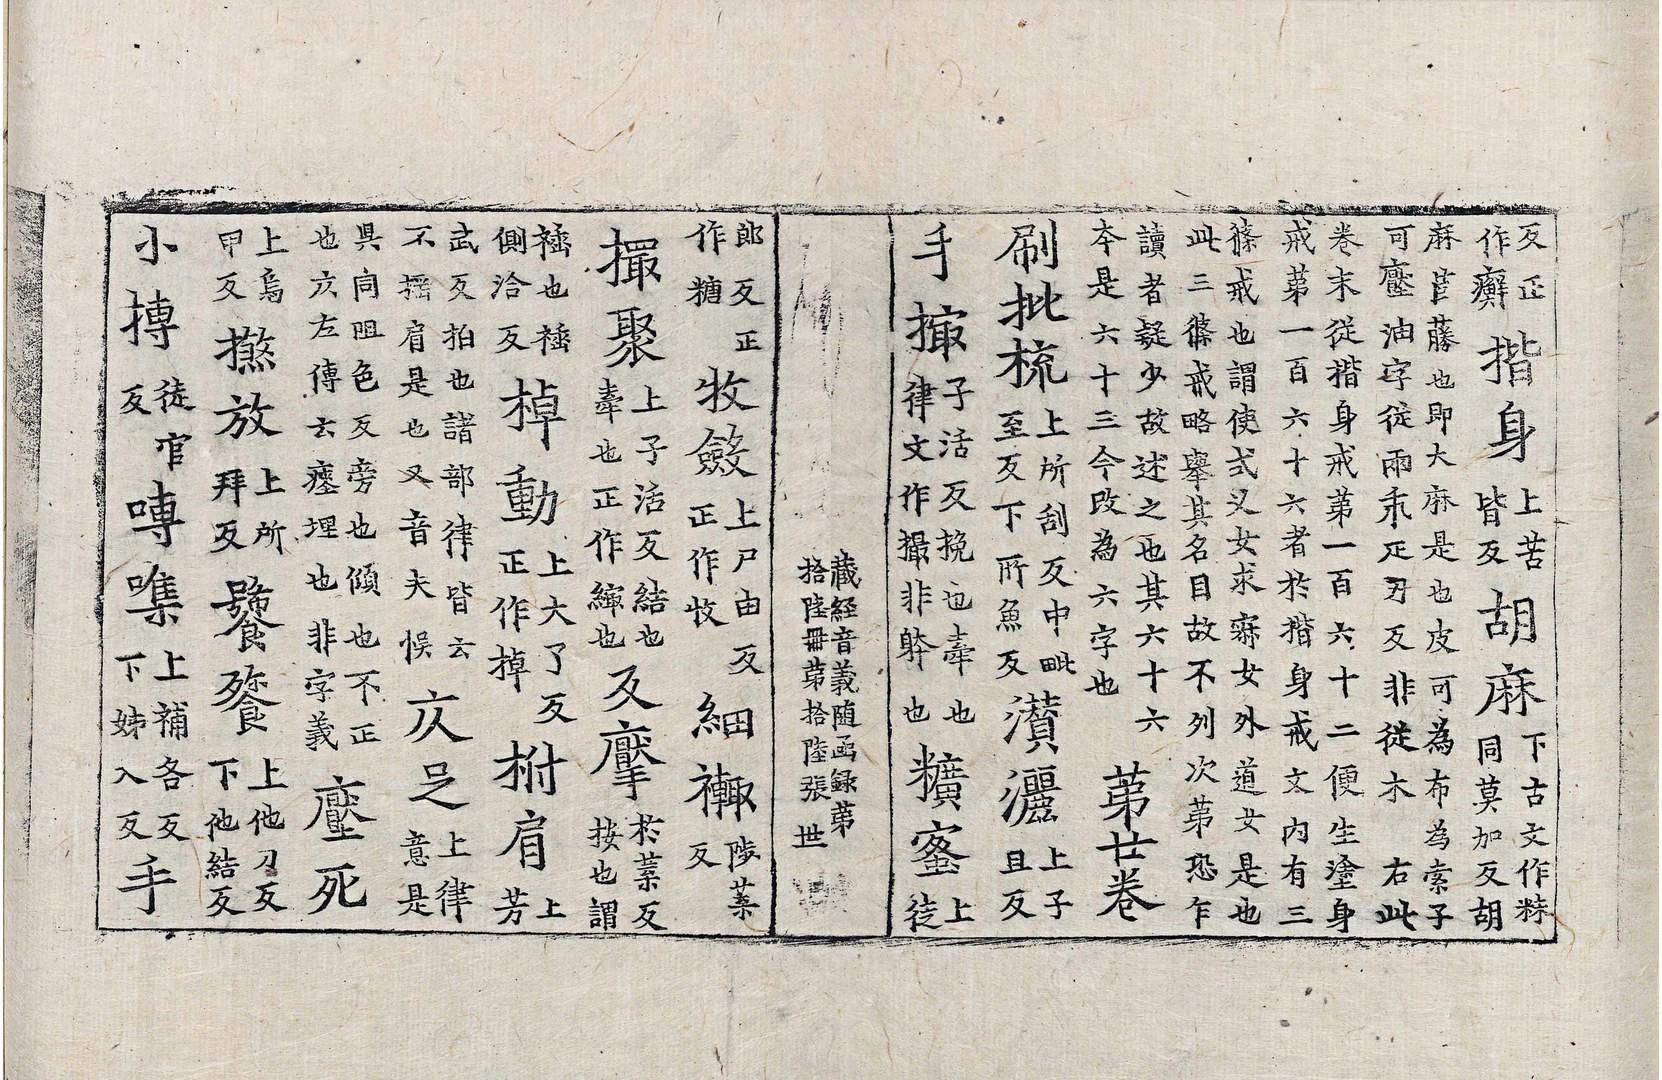 反正作癬揩身上苦皆反胡麻下古文作𪎭同莫加反胡
麻苣藤也即大麻是也皮可為布為索子可壓油字從雨𣎳疋刃反非從木右此
卷末從揩身戒第一百六十二便生塗身戒第一百六十六者於揩身戒文内有三
篠戒也謂使式叉女求寂女外道女是也此三篠戒略舉其名目故不列次第恐乍
讀者疑少故述之也其六十六本是六十三今改為六字也第廿卷
刷批梳上所刮反中毗至反下所魚反濽灑上子且反
手撮子活反挽也牽也律文作撮非躰也穬𥻦上徒
藏經音義随函録第拾陸冊第拾陸張世
郎反正作糖牧斂上尸由反正作收細襵陟葉反
撮聚上子活反結也牽也正作繓也反擪於葉反按也謂
襵也襵側洽反棹動上大了反正作掉柎肩上芳
武反拍也諸部律皆云不搖肩是也又音夫悮仄足上律意是
具同阻色反旁也傾也不正也仄左傳云瘞埋也非字義壓死
上烏甲反撚放上所拜反饕餮上他刀反下他結反
小摶徒官反嚩噍上補各反下姊入反手